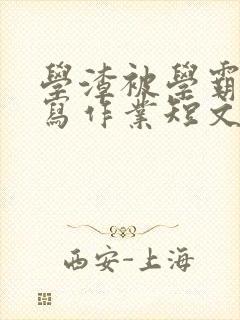 學渣被學霸
寫作業短文
西安-上海